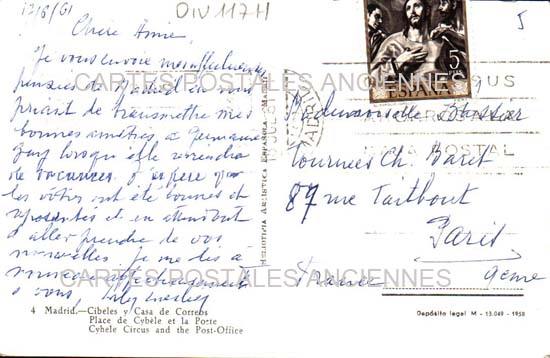 12/8/61
DIV 117H
5
Chère Anne,
Je vous envoie mes affectueuses
pensées de Madrid en vous
priant de transmettre mes
bonnes amitiés à Germaine
Guy lorsqu'elle reviendra
de vacances. J'espère que
les vôtres ont été bonnes et
reposantes et en attendant
d'aller prendre de vos
nouvelles, je me dis
affectueusement
à vous,
5
Mademoiselle
Tournées Ch. Baret
87 rue Taitbout
Paris
9eme
France
CARTES POSTALES ANCIENNES
CARTES POSTALES ANCIENNES
POSTAL
HELIOTIPIA ARTISTICA ESPAÑOLA - MADRID
4 Madrid.—Cibeles y Casa de Correos
Place de Cybèle et la Poste
Cybele Circus and the Post-Office
Depósito legal M - 13.049 - 1958